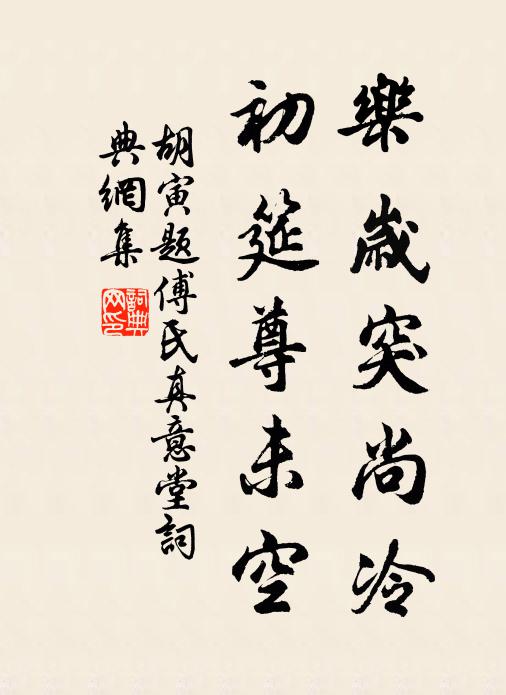 樂歲突尚冷
初筵尊未空
胡寅題傅氏真意堂詞
典網集
詞典網印